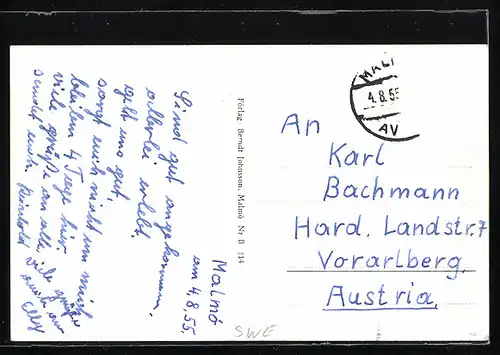 Malmö
am 4.8.55.
Sind gut angekommen,
allerlei erlebt.
geht uns gut.
sorgt euch nicht um mich
bleiben 4 Tage hier.
viele Grüße an alle,
sendet euch Reinhold
viele Grüße
auch
Elly
Förlag Berndt Johnsson, Malmö Nr B 314
MAL
4.8.55
AV
An
Karl
Bachmann
Hard. Landstr. 7
Vorarlberg.
Austria.
SWE